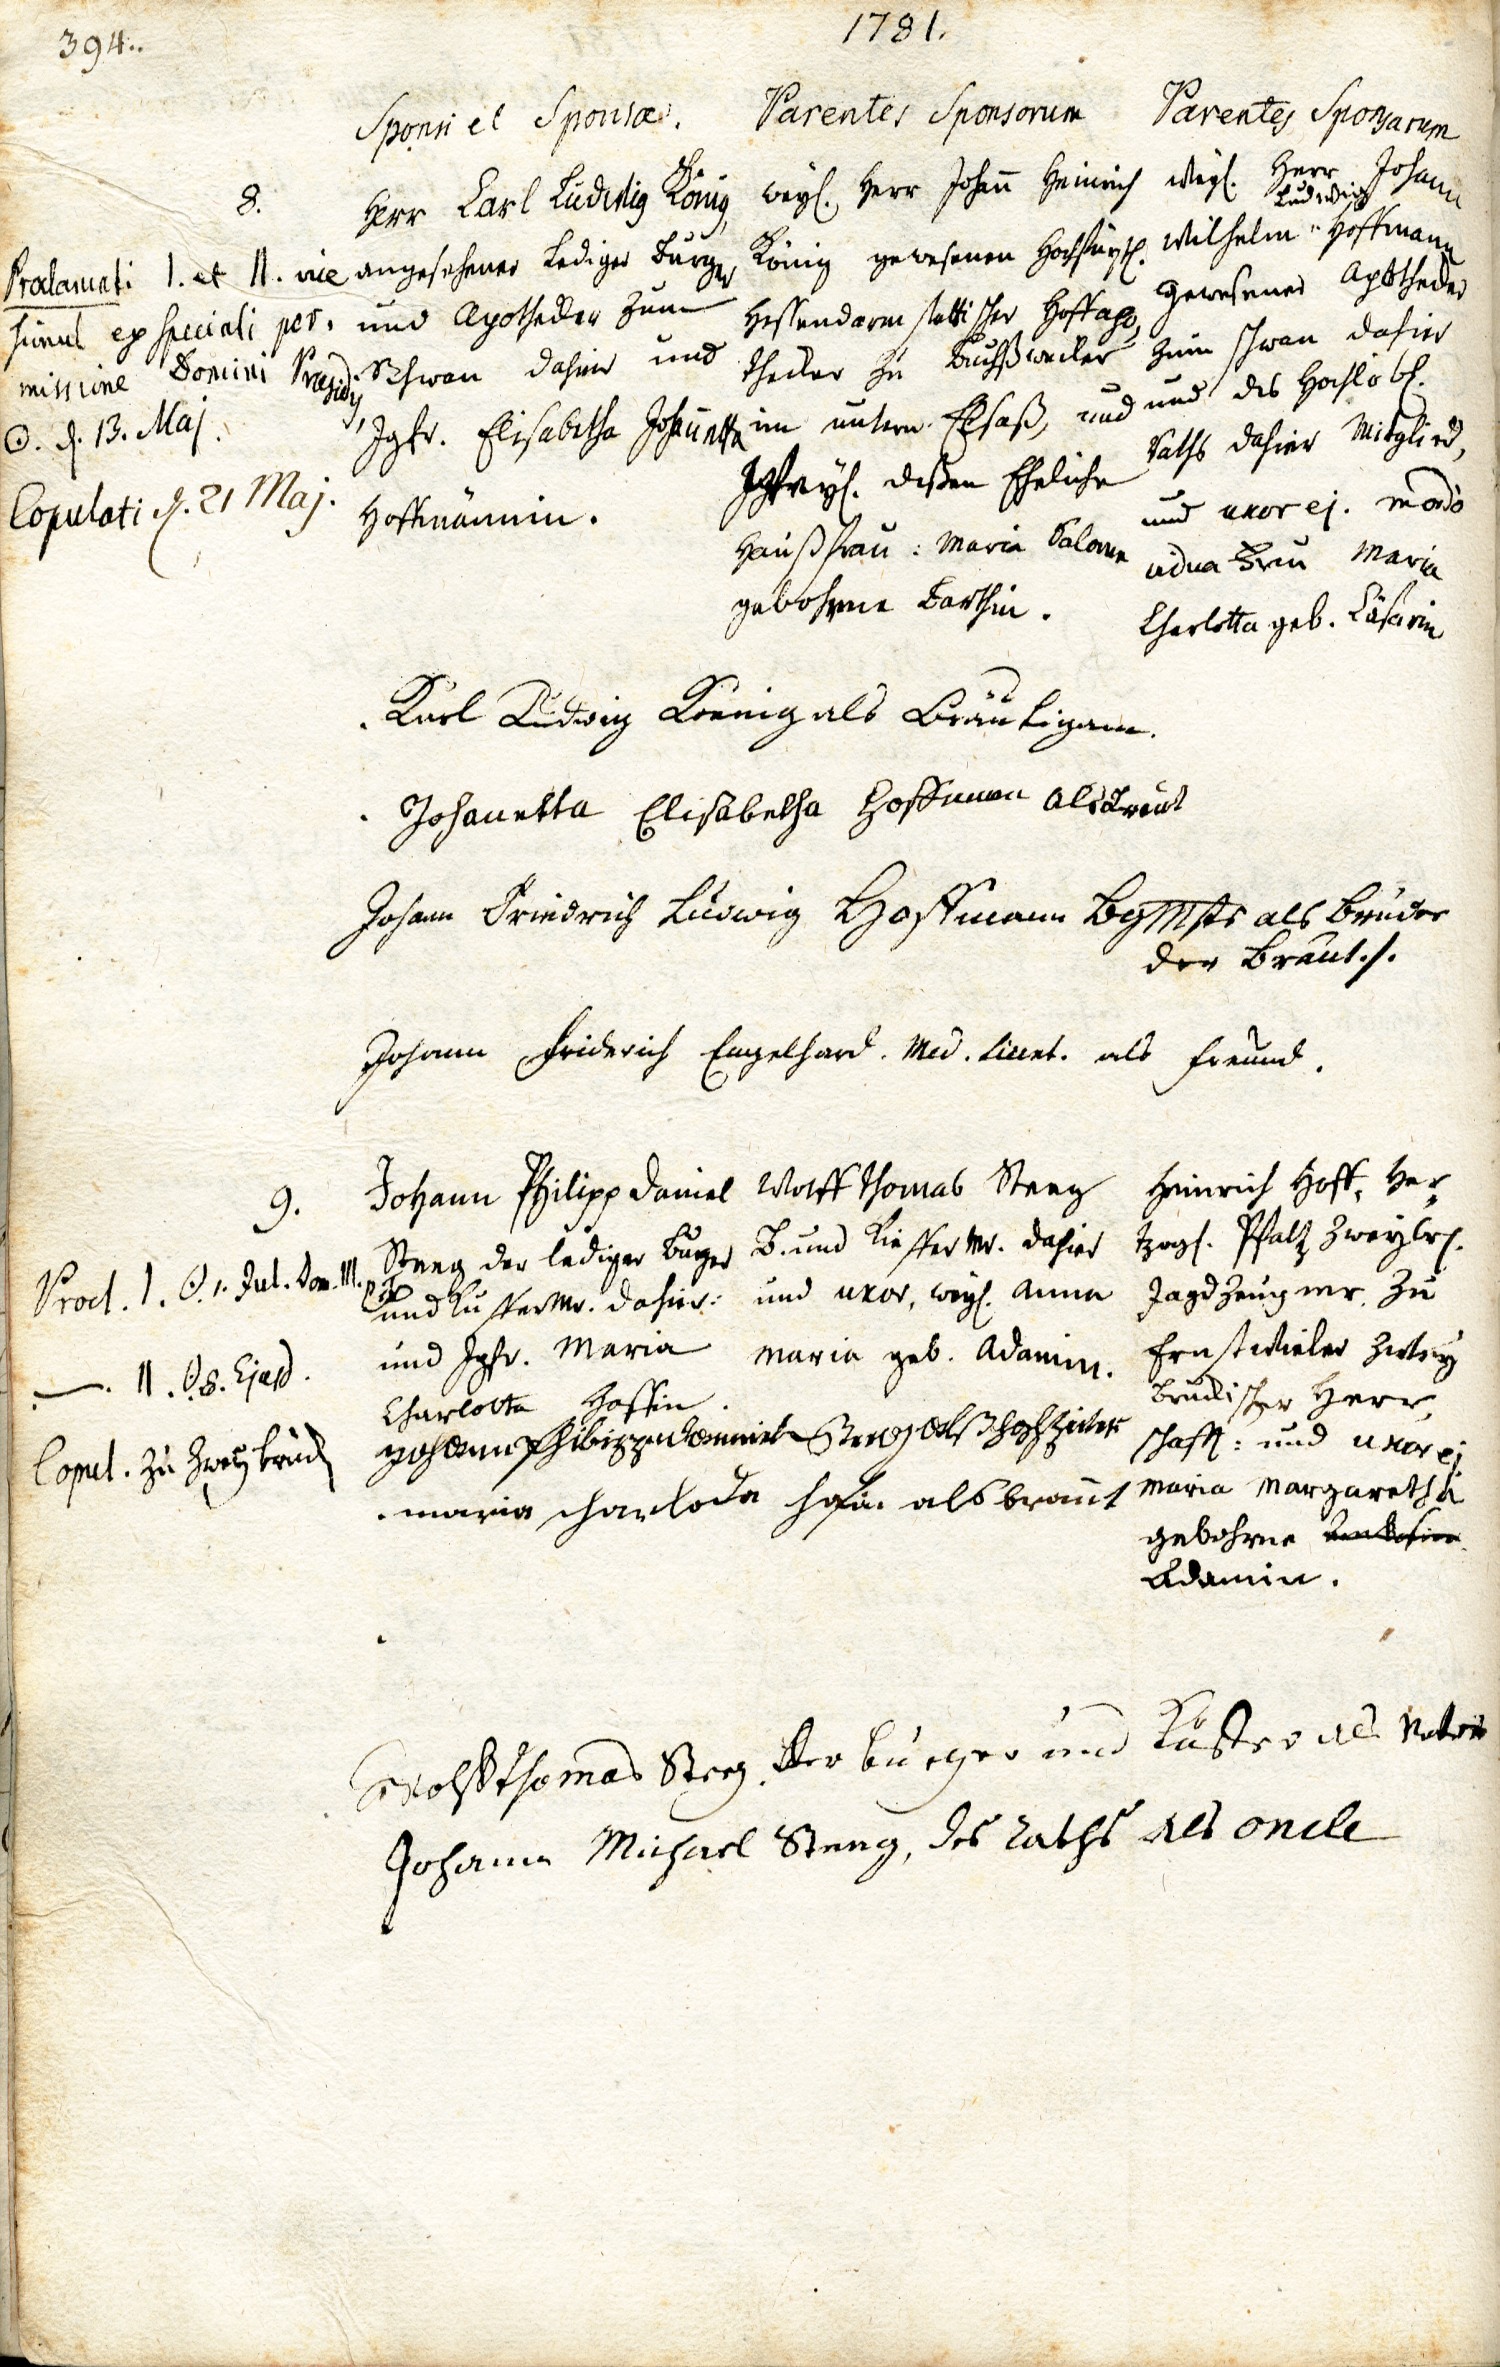 394..
1781.
Sponsi et Sponsæ.
Parentes Sponsorum
Parentes Sponsarum
8.
Proclamati I. et II. vice
simul ex speciali per-
missione Domini Præsidy
⊙. d. 13. Maj.
Copulati d. 21 Maj.
Herr Carl Ludwig König,
angesehener lediger Burger
und Apothecker zum
Schwan dahier und
Jgfr. Elisabetha Johannetta
Hoffmännin.
weyl. Herr Johann Heinrich
König gewesenen Hochfürstl.
Hessendarmstattischer Hoffapo,
thecker zu Buchßweiler
im untern Elsaß, und
weyl. deßen Eheliche
Haußfrau: Maria Salome
gebohrne Barthin.
weyl. Herr Johann
Ludwig
Wilhelm " Hoffmann
gewesener Apothecker
zum schwan dahier
und des Hochlöbl.
Raths dahier Mitglied,
und uxor ej. modo
vidua Frau Maria
Charlotta geb. Cäsarin
Karl Ludwig Koenig als Bräutigam.
Johanetta Elisabetha Hoffmann als Braut
Johann Friedrich Ludwig Hoffmann als Bruder
der Braut./.
Johann Friderich Engelhard. Med. Licent. als Freund.
9.
Procl. I. ⊙. 1. Jul. Dom. III. p. Tr.
—. II. ⊙ 8. Ejusd.
Copul. zu Zweybrück
Johann Philipp Daniel
Steeg der lediger Burger
und Kuffer Mr. dahier:
und Jgfr. Maria
Charlotta Hoffin.
Wolff Thomas Steeg
B. und Kieffer Mr. dahier
und uxor, weyl. Anna
Maria geb. Adamin.
Heinrich Hoff, Her-
tzogl. Pfaltz Zweybr.
Jagdzeug mr. zu
Ernstweiler Zwey
bruckischer Herr,
schafft: und uxor ej
Maria Margaretha
gebohrne
Adamin.
Johann Philipp Daniel Steeg als Hochzeiter
maria charloda hofin als braut
Wolff Thomas Steeg der burger und Küffer als Vatter
Johann Michael Steeg, des Raths als oncle